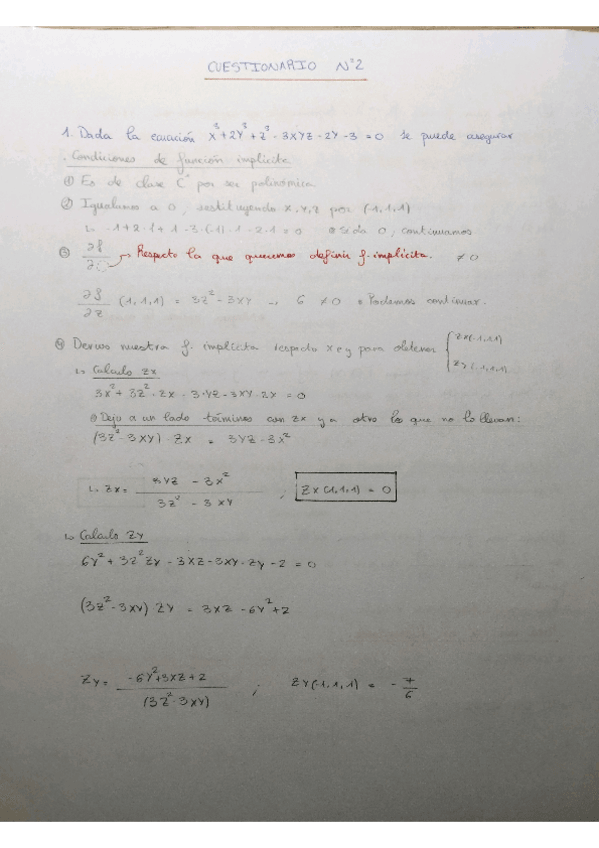 CUESTIONARIO Nº2
1. Dada la ecuación x³+2y³+z³-3xyz-2y-3=0 se puede asegurar
. Condiciones de función implícita
① Es de clase C¹ por ser polinómica
② Igualamos a 0, sustituyendo x,y,z por (-1,1,1)
↳ -1+2·1+1-3·(-1)·1-2·1=0 ⊙ Si da 0, continuamos
③ ∂f/∂ → Respecto la que queremos definir f. implícita. ≠0
∂f/∂z (-1,1,1) = 3z²-3xy → 6 ≠0 ⊙ Podemos continuar.
④ Derivamos nuestra f. implícita respecto x e y para obtener { zx(-1,1,1)
zy(-1,1,1)
↳ Calculo zx
3x²+3z²·zx-3yz-3xy·zx=0
⊙ Dejo a un lado términos con zx y a otro los que no lo llevan:
(3z²-3xy)·zx = 3yz-3x²
↳ zx= 3yz-3x² / 3z²-3xy ; zx(-1,1,1)=0
↳ Calculo zy
6y²+3z²zy-3xz-3xy·zy-2=0
(3z²-3xy) zy = 3xz-6y²+2
zy= -6y²+3xz+2 / (3z²-3xy) ; zy(-1,1,1) = -7/6